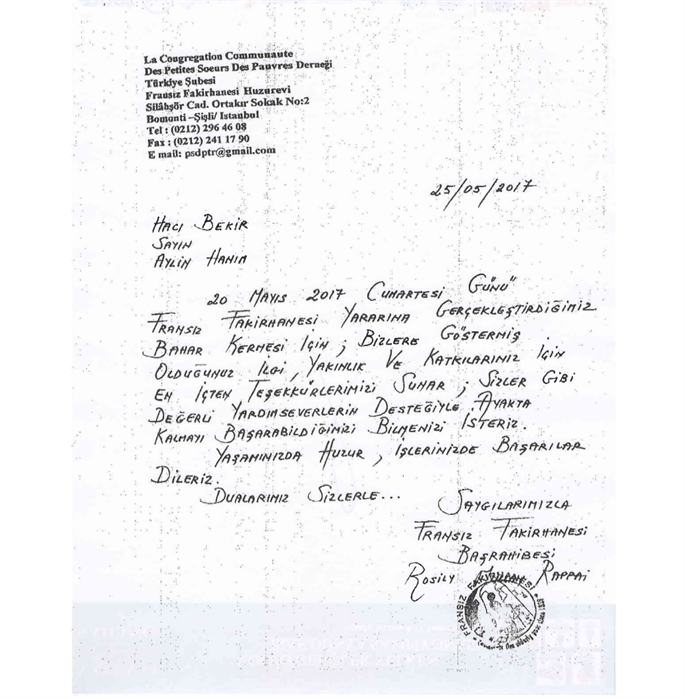 La Congregation Communaute
Des Petites Soeurs Des Pauvres Derneği
Türkiye Şubesi
Fransız Fakirhanesi Huzurevi
Silâhşör Cad. Ortakır Sokak No:2
Bomonti –Şişli/ Istanbul
Tel : (0212) 296 46 08
Fax : (0212) 241 17 90
E mail: psdptr@gmail.com
25/05/2017
HACI BEKİR
SAYIN
AYLİN HANIM
20 MAYIS 2017 CUMARTESİ GÜNÜ
FRANSIZ FAKİRHANESİ YARARINA GERÇEKLEŞTİRDİĞİMİZ
BAHAR KERMESİ İÇİN ; BİZLERE GÖSTERMİŞ
OLDUĞUNUZ İLGİ, YAKINLIK VE KATKILARINIZ İÇİN
EN İÇTEN TEŞEKKÜRLERİMİZİ SUNAR ; SİZLER GİBİ
DEĞERLİ YARDIMSEVERLERİN DESTEĞİYLE AYAKTA
KALMAYI BAŞARABİLDİĞİMİZİ BİLMENİZİ İSTERİZ.
YAŞAMINIZDA HUZUR, İŞLERİNİZDE BAŞARILAR
DİLERİZ.
DUALARIMIZ SİZLERLE...
SAYGILARIMIZLA
FRANSIZ FAKİRHANESİ
BAŞRAHİBESİ
ROSILY RAPPAI
FRANSIZ FAKIRHANESI